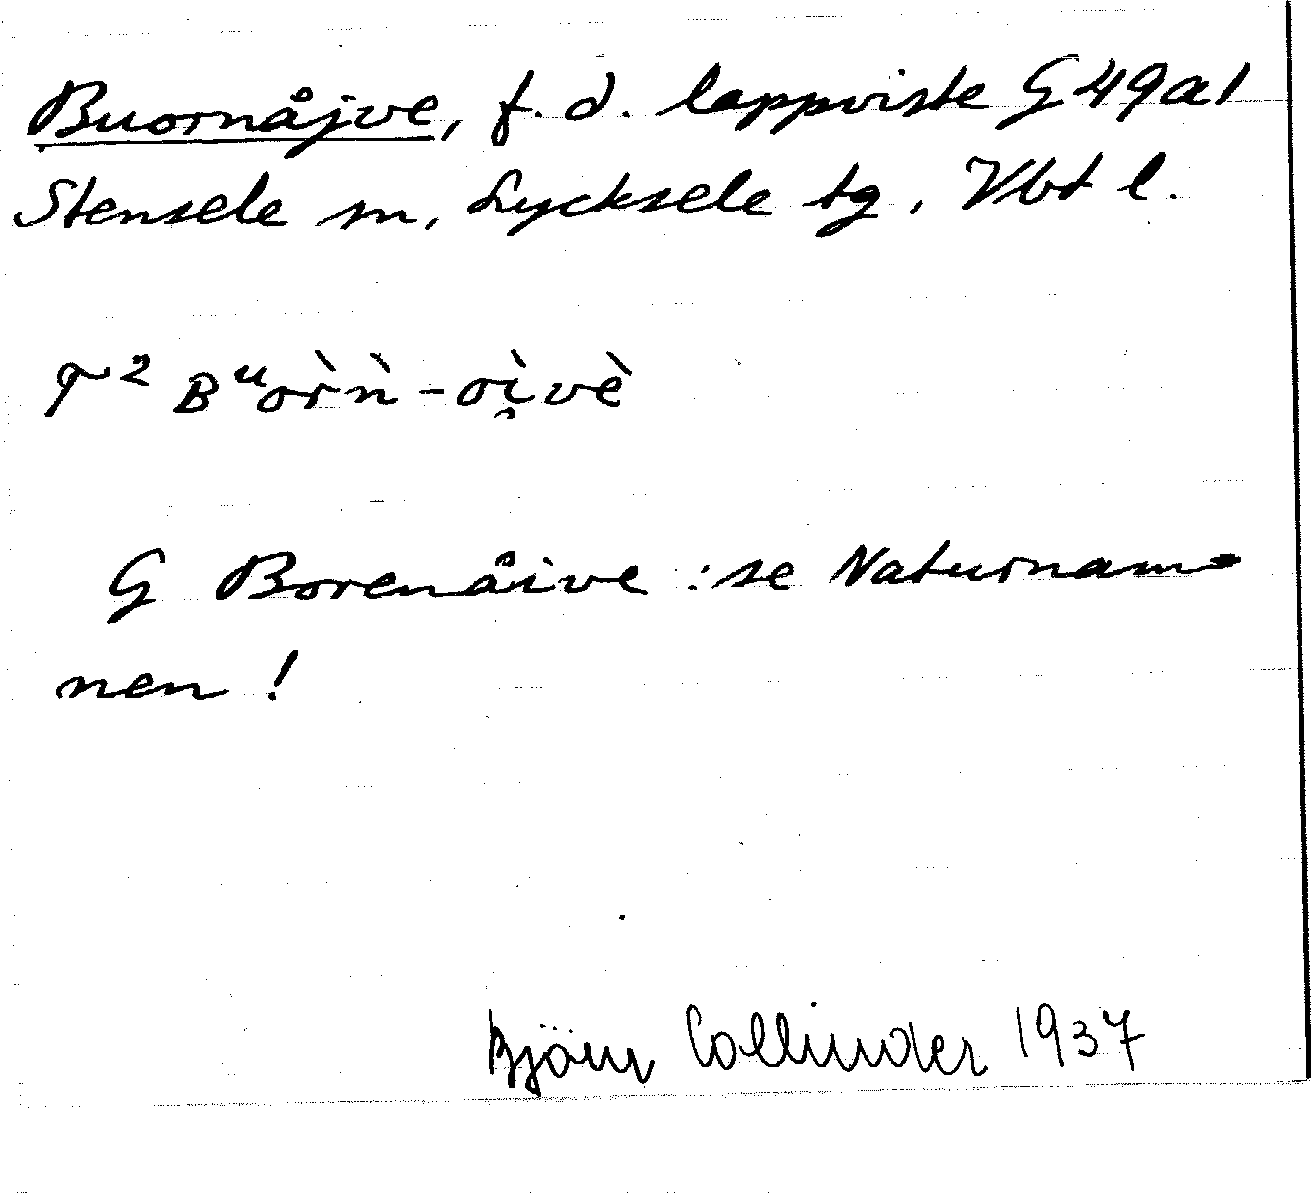 Buornåjve, f. d. lappviste G 49a1
Stensele sn, Lycksele tg, Vbt l.
T² Bᵘor̀ǹ-oì̯vè
G Borenåive : se Naturnam-
nen !
Björn Collinder 1937